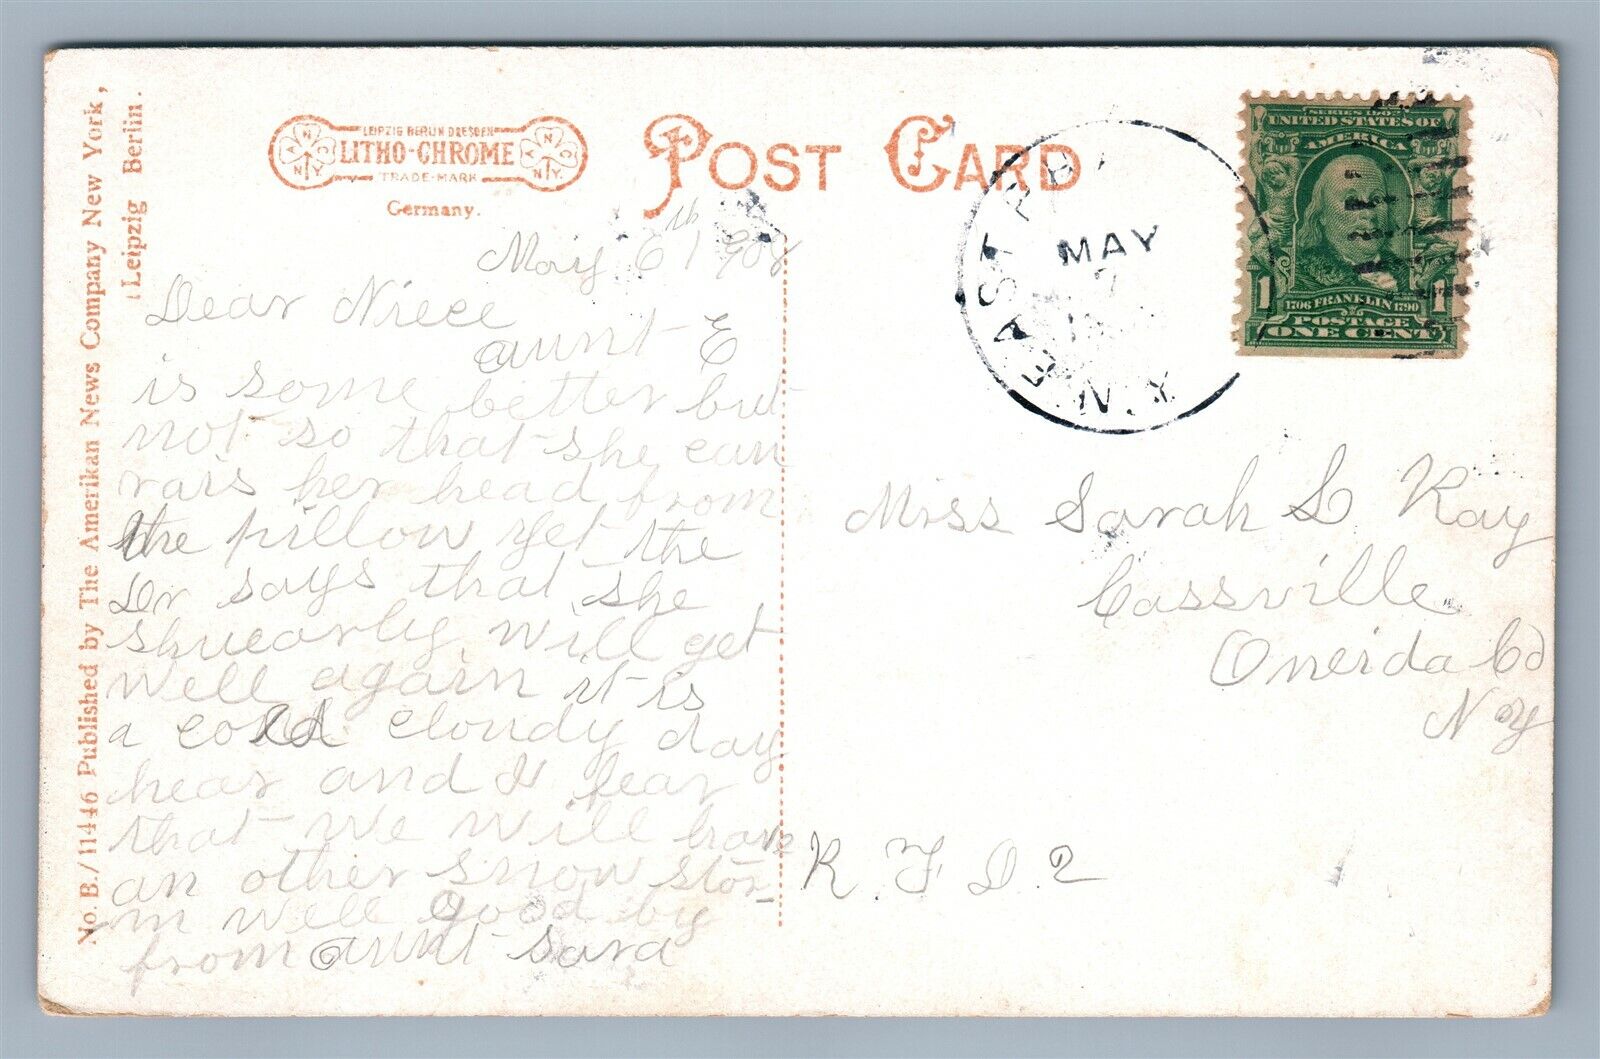 No. B./11446 Published by The Amerikan News Company New York,
Leipzig Berlin.
LEIPZIG BERLIN DRESDEN
LITHO-CHROME
TRADE-MARK
A N C N.Y.
A N C N.Y.
Germany.
POST CARD
EAST
MAY
7
N.Y.
SERIES 1902
UNITED STATES OF
AMERICA
1706 FRANKLIN 1790
1 1
POSTAGE
ONE CENT
May 6th 1908
Dear Niece
aunt E
is some better but
not so that she can
rais her head from
the pillow yet the
Dr says that she
will get
well again it is
a cold cloudy day
hear and I fear
that we will have
an other snow stor-
m well good by
from aunt Sara
Miss Sarah L Ray
Cassville
Oneida Co
N y
R. F D. 2